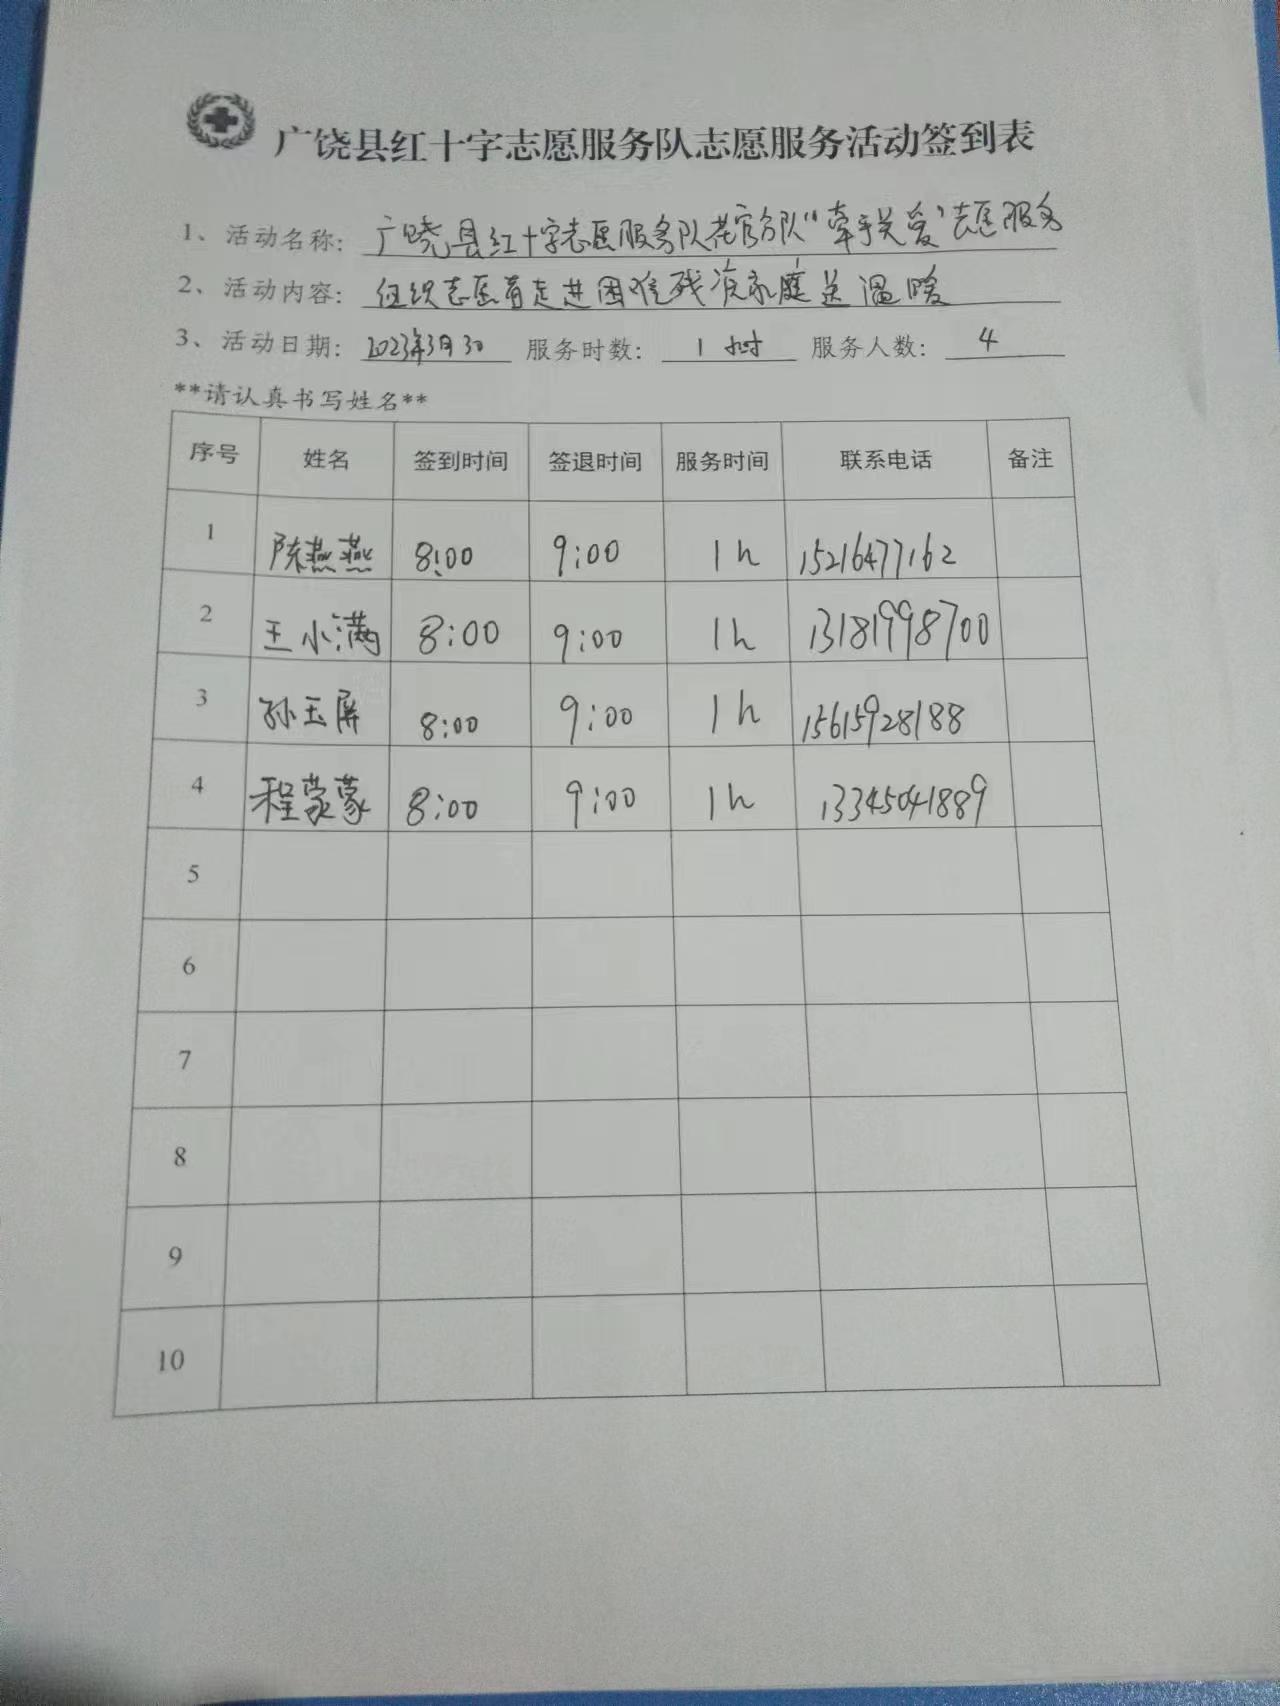 广饶县红十字志愿服务队志愿服务活动签到表
1、活动名称：广饶县红十字志愿服务队花官分队“牵手关爱”志愿服务
2、活动内容：组织志愿者走进困难残疾家庭送温暖
3、活动日期：2023年3月30 服务时数：1小时 服务人数：4
**请认真书写姓名**
序号 姓名 签到时间 签退时间 服务时间 联系电话 备注
1 陈燕燕 8:00 9:00 1h 15216477162
2 王小满 8:00 9:00 1h 13181998700
3 孙玉屏 8:00 9:00 1h 15615928188
4 程蒙蒙 8:00 9:00 1h 13345041889
5
6
7
8
9
10